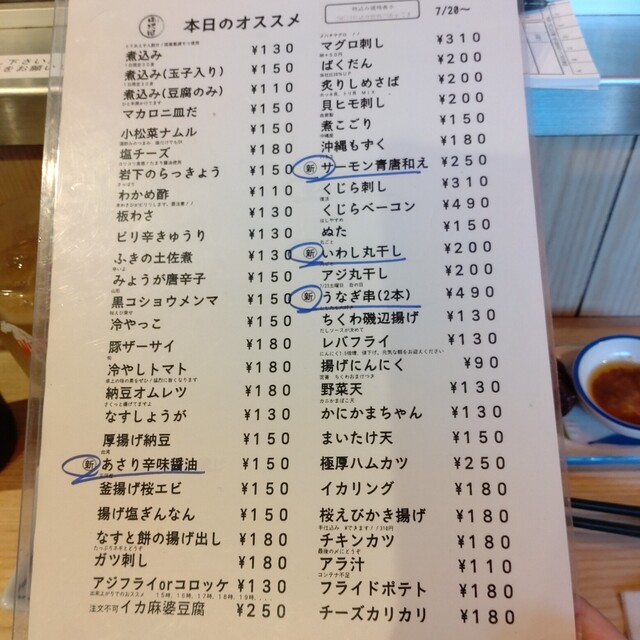 本日のオススメ
7/20～
煮込み ¥130
煮込み(玉子入り) ¥150
煮込み(豆腐のみ) ¥110
マカロニ皿だ ¥150
小松菜ナムル ¥150
塩チーズ ¥180
岩下のらっきょう ¥150
わかめ酢 ¥110
板わさ ¥130
ピリ辛きゅうり ¥130
ふきの土佐煮 ¥130
みょうが唐辛子 ¥150
黒コショウメンマ ¥150
冷やっこ ¥150
豚ザーサイ ¥180
冷やしトマト ¥180
納豆オムレツ ¥180
なすしょうが ¥130
厚揚げ納豆 ¥150
新 あさり辛味醤油 ¥150
釜揚げ桜エビ ¥150
揚げ塩ぎんなん ¥150
なすと餅の揚げ出し ¥180
ガツ刺し ¥180
アジフライorコロッケ ¥130
注文不可 イカ麻婆豆腐 ¥250
マグロ刺し ¥310
ばくだん ¥200
炙りしめさば ¥200
貝ヒモ刺し ¥200
煮こごり ¥150
沖縄もずく ¥180
新 サーモン青唐和え ¥250
くじら刺し ¥310
くじらベーコン ¥490
ぬた ¥150
新 いわし丸干し ¥200
アジ丸干し ¥200
新 うなぎ串(2本) ¥490
ちくわ磯辺揚げ ¥130
レバフライ ¥130
揚げにんにく ¥90
野菜天 ¥130
かにかまちゃん ¥130
まいたけ天 ¥150
極厚ハムカツ ¥250
イカリング ¥180
桜えびかき揚げ ¥180
チキンカツ ¥180
アラ汁 ¥110
フライドポテト ¥180
チーズカリカリ ¥180